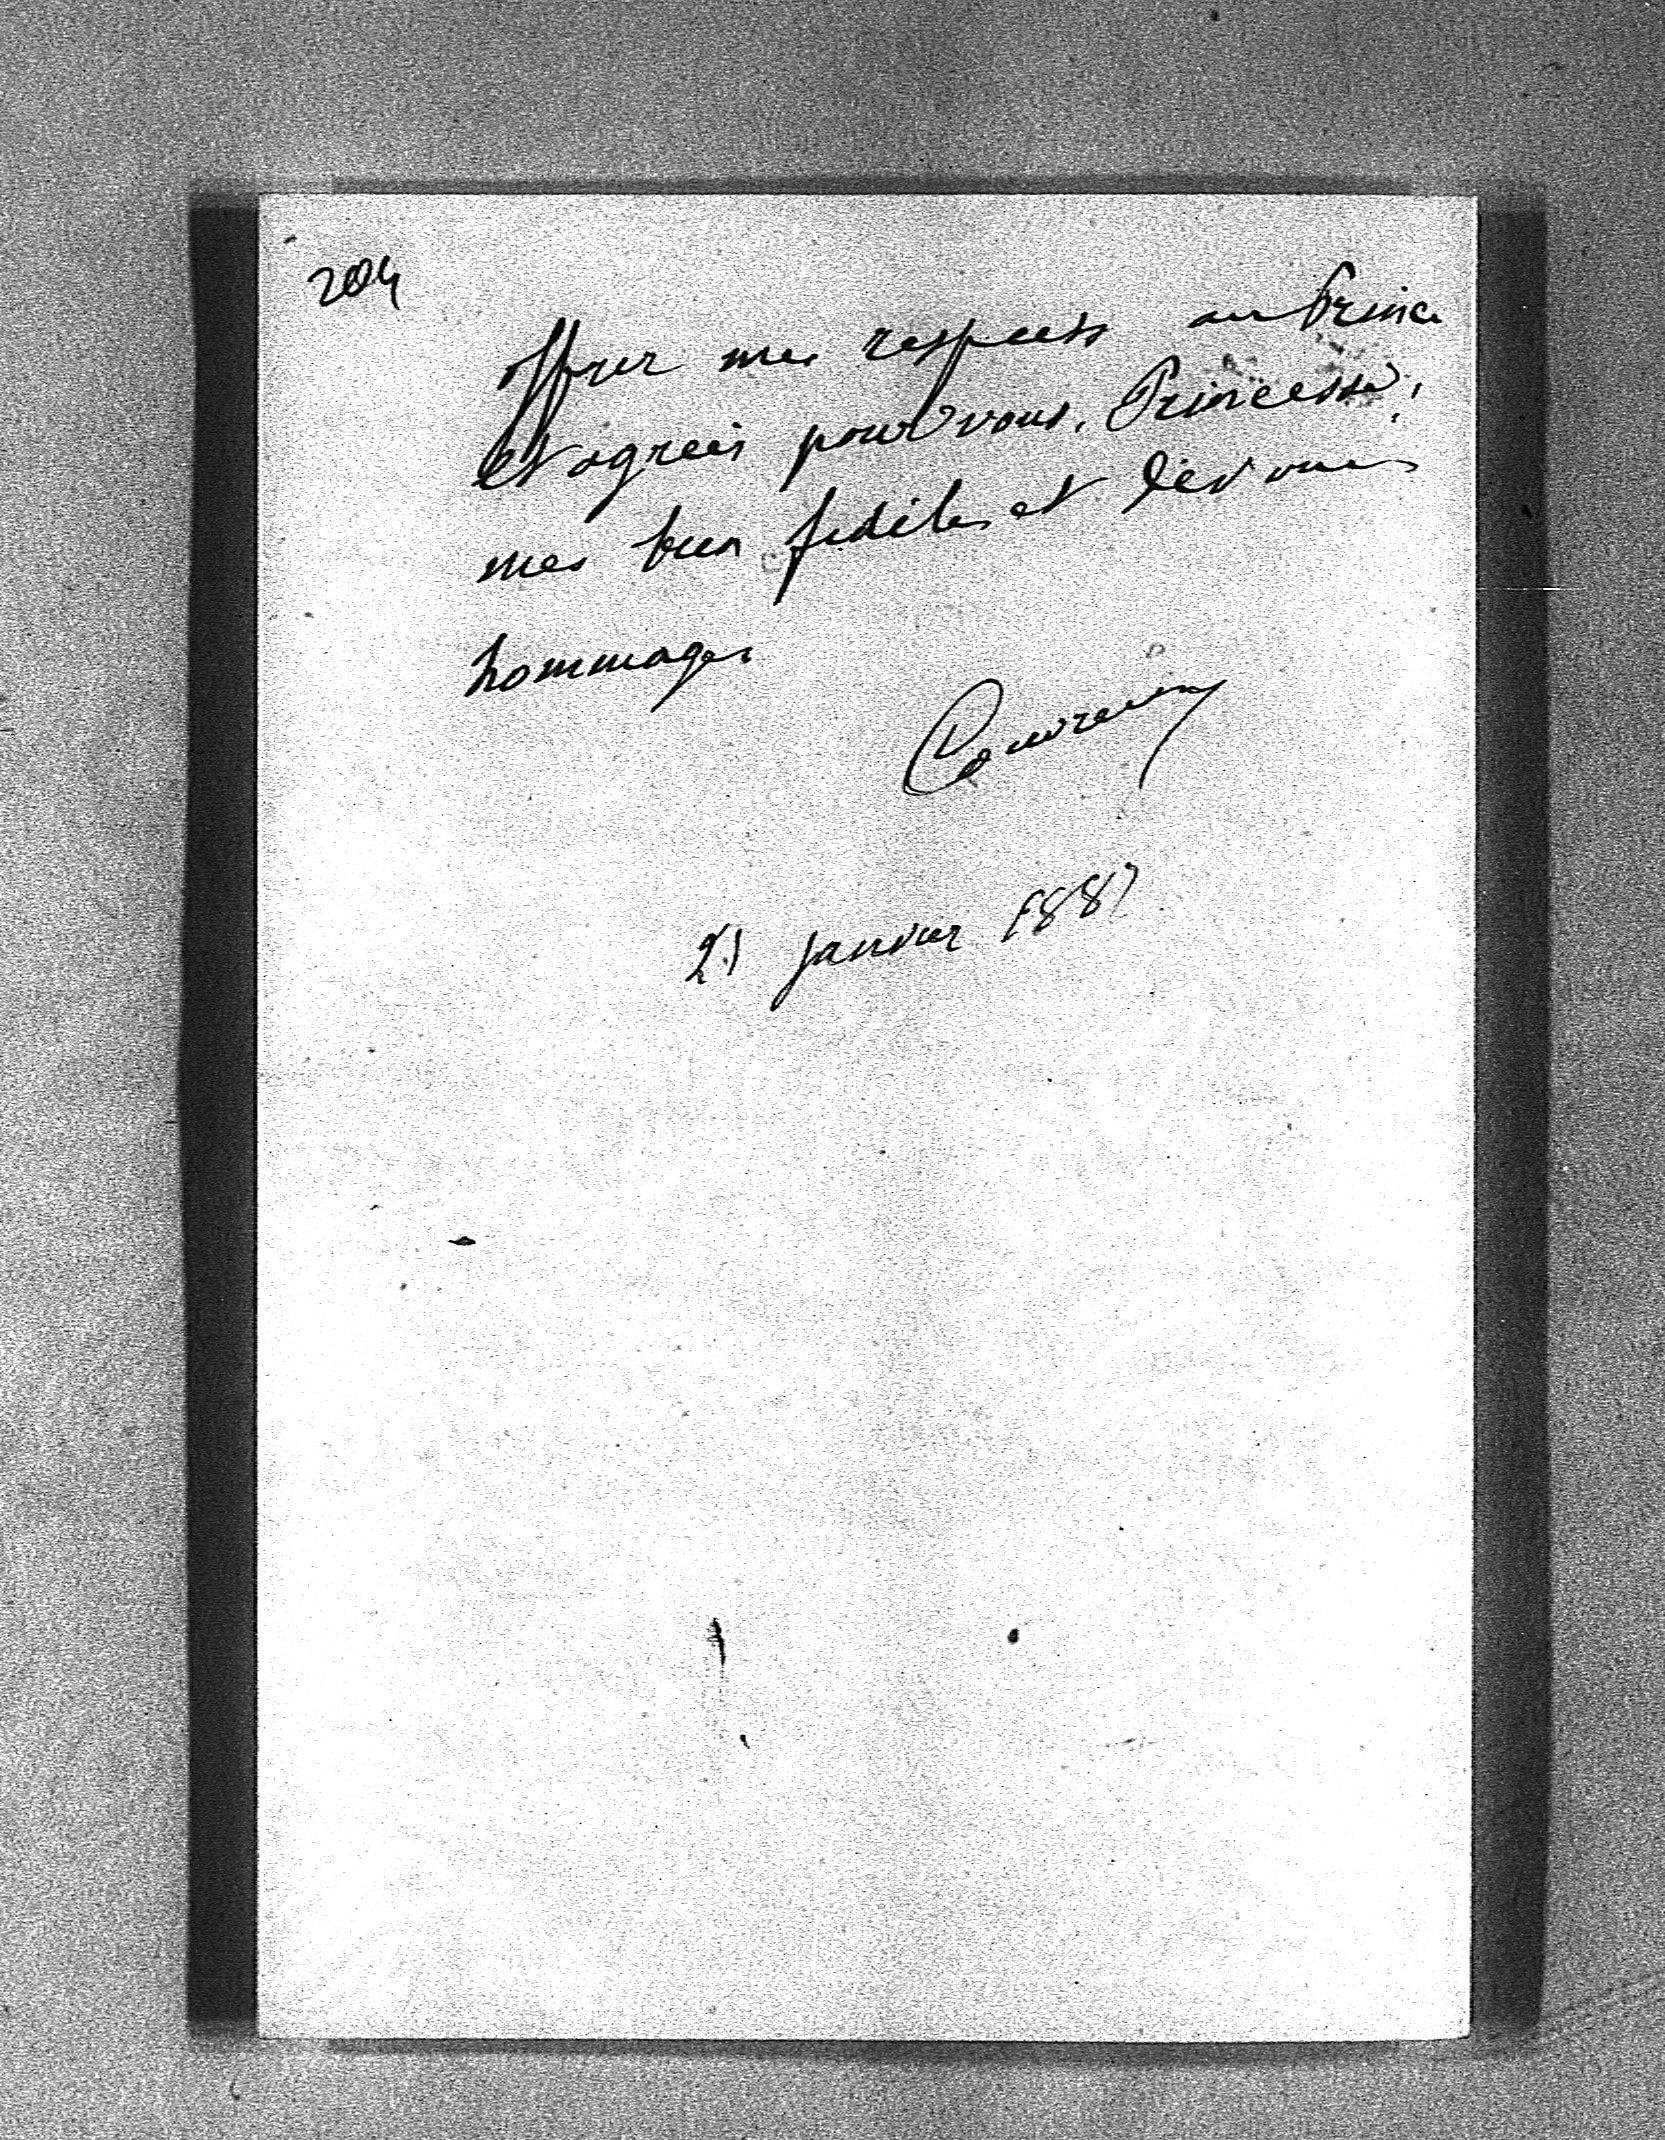 204
offrir mes respects au Prince
et agréer pour vous, Princesse,
mes bien fidèles et dévoués
hommages
21 janvier 1887